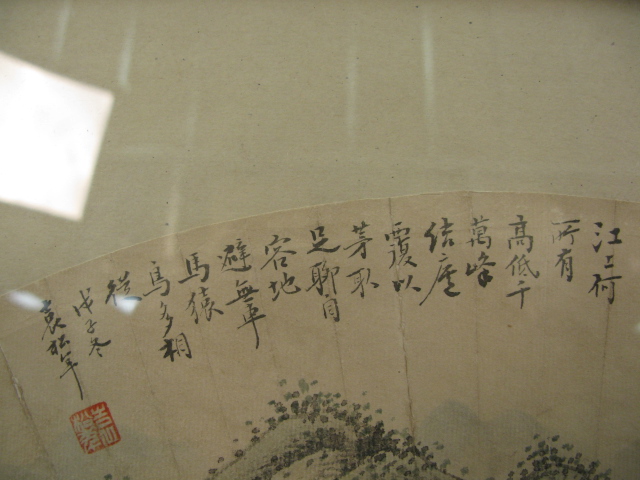 江上何
所有
高低千
萬峰
结廬
覆以
茅取
足聊自
容地
避無車
馬猿
鳥多相
從
戊子冬
袁松年